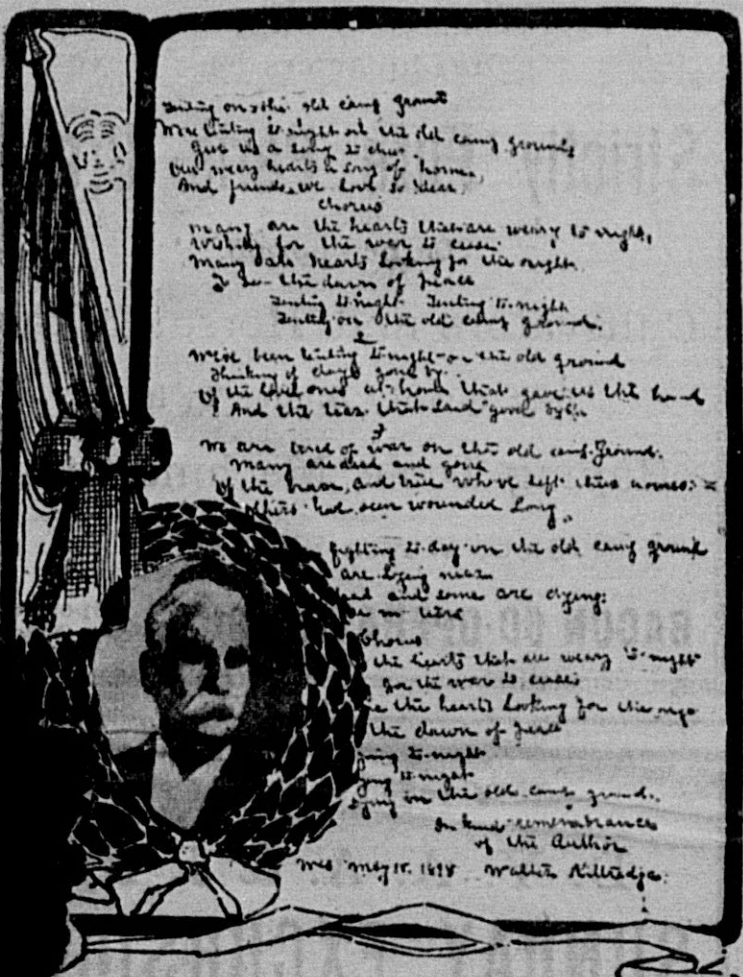 Tenting on the old camp ground
We're tenting to-night on the old camp ground,
Give us a song to cheer
Our weary hearts a song of home,
And friends we love so dear,
Chorus
Many are the hearts that are weary to night,
Wishing for the war to cease.
Many are hearts looking for the right
To see the dawn of peace
Tenting to-night Tenting to-night
Tenting on the old camp ground.
2
We've been tenting to-night on the old ground
Thinking of days gone by.
Of the loved ones at home that gave us the hand
And the tear that said good bye
3
We are tired of war on the old camp Ground.
Many are dead and gone
Of the brave, and true who've left their homes:
others had been wounded Long
fighting to-day on the old camp ground
are Lying near
and some are dying:
in tears
Chorus
the hearts that are weary to-night
for the war to cease
the hearts Looking for the
the dawn of peace
to-night
to-night
on the old camp ground.
In kind remembrance
of the Author
May 1898 Walter Kittredge.